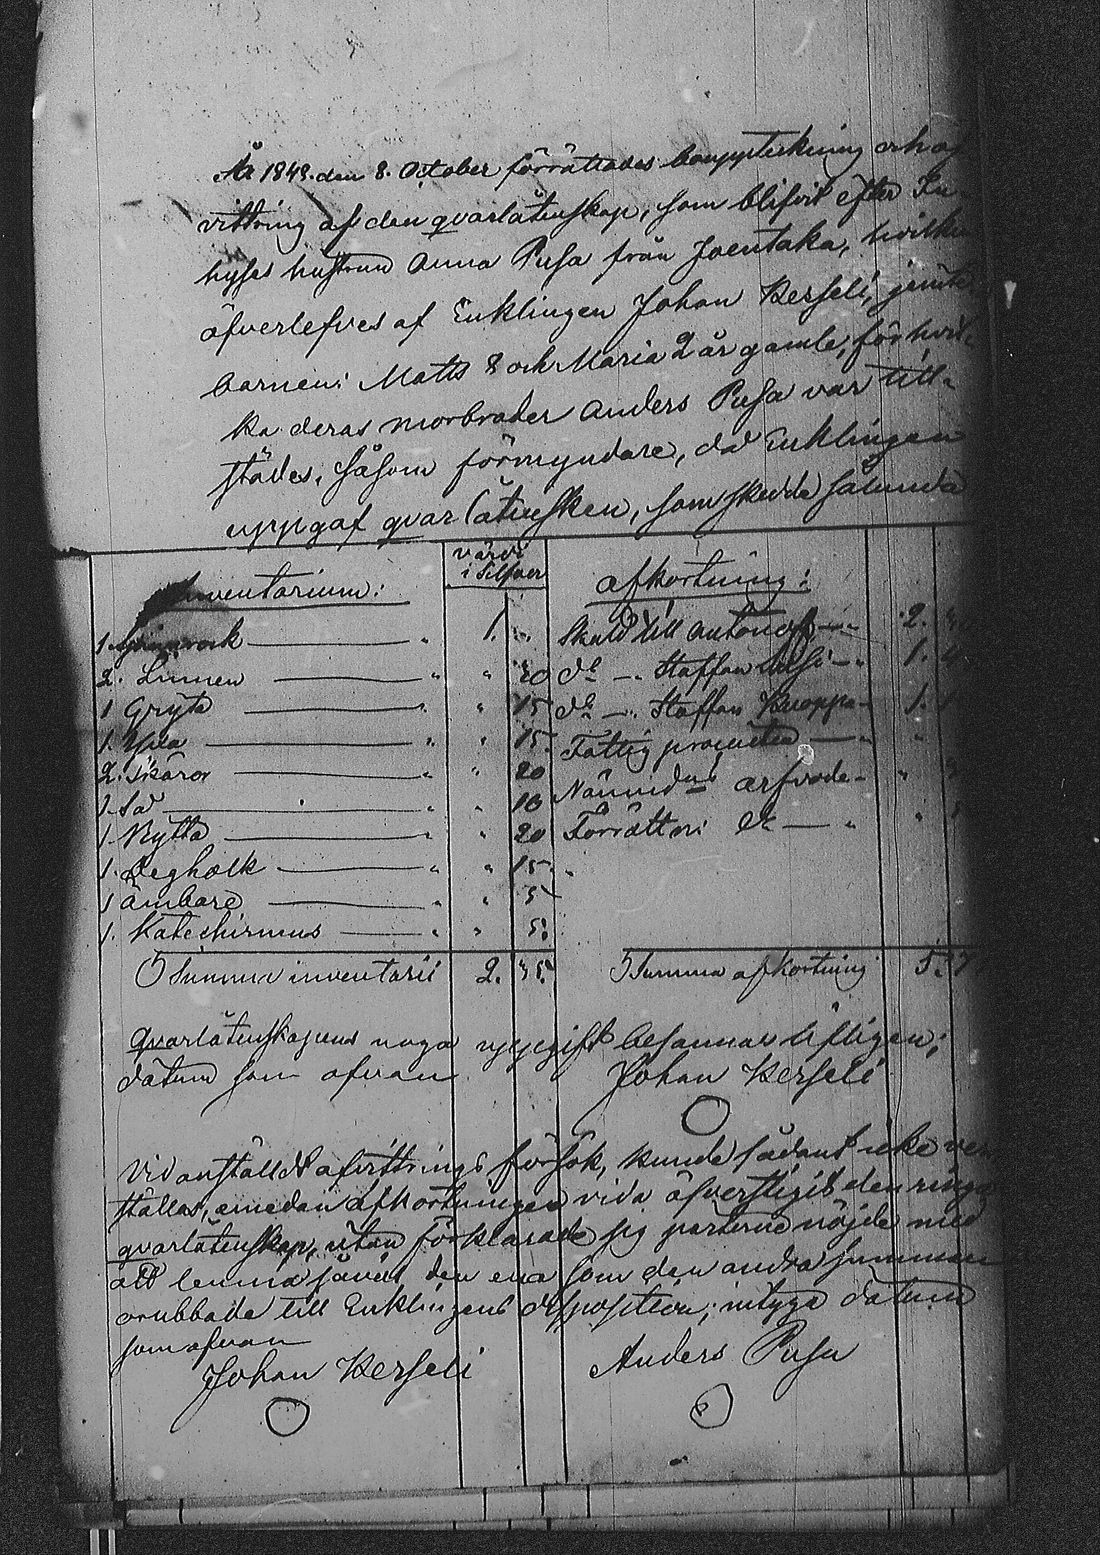 År 1848. den 8. October förrättades bouppteckning och af
vittring af den qvarlåtenskap, som blifvit efter In
hyses hustrun Anna Pusa från Joentaka, hvilken
öfverlefves af Enklingen Johan Kerseli, jemte
barnen: Matts 8 och Maria 2 år gamle, för hvil-
ka deras morbroder Anders Pusa var till-
städes, såsom förmyndare, då Enklingen
uppgaf qvarlåtensken, som skedde sålunda
värde
i Silfver
Inventarium:
afkortning:
1. 1.
Skuld till 2.
2. Linnen " " 20
do " Staffan 1.
1 Gryta " " 15
do " Staffan Kuoppa 1.
1. Yxa " " 15.
Fattig procenten " "
2. Skäror " " 20
arfvode "
1. Så " " 10
Förrättn: do "
1. Bytta " " 20
1. Degholk " " 15.
1 ämbare " " 5
1. Katechismus " " 5.
Summa inventarii 2. 35.
Summa afkortning 5.
Qvarlåtenskapens noga uppgift besannar lifligen;
datum som ofvan
Johan Kerseli
Vid anstäldt afvittrings försök, kunde sådant icke verk
ställas, emedan afkortningen vida öfverstigit den ringa
qvarlåtenskap, utan förklarade sig parterne nöjde med
att lemna såväl den ena som den andra summan
orubbade till Enklingens disposition; intyga datum
som ofvan
Johan Kerseli
Anders Pusa